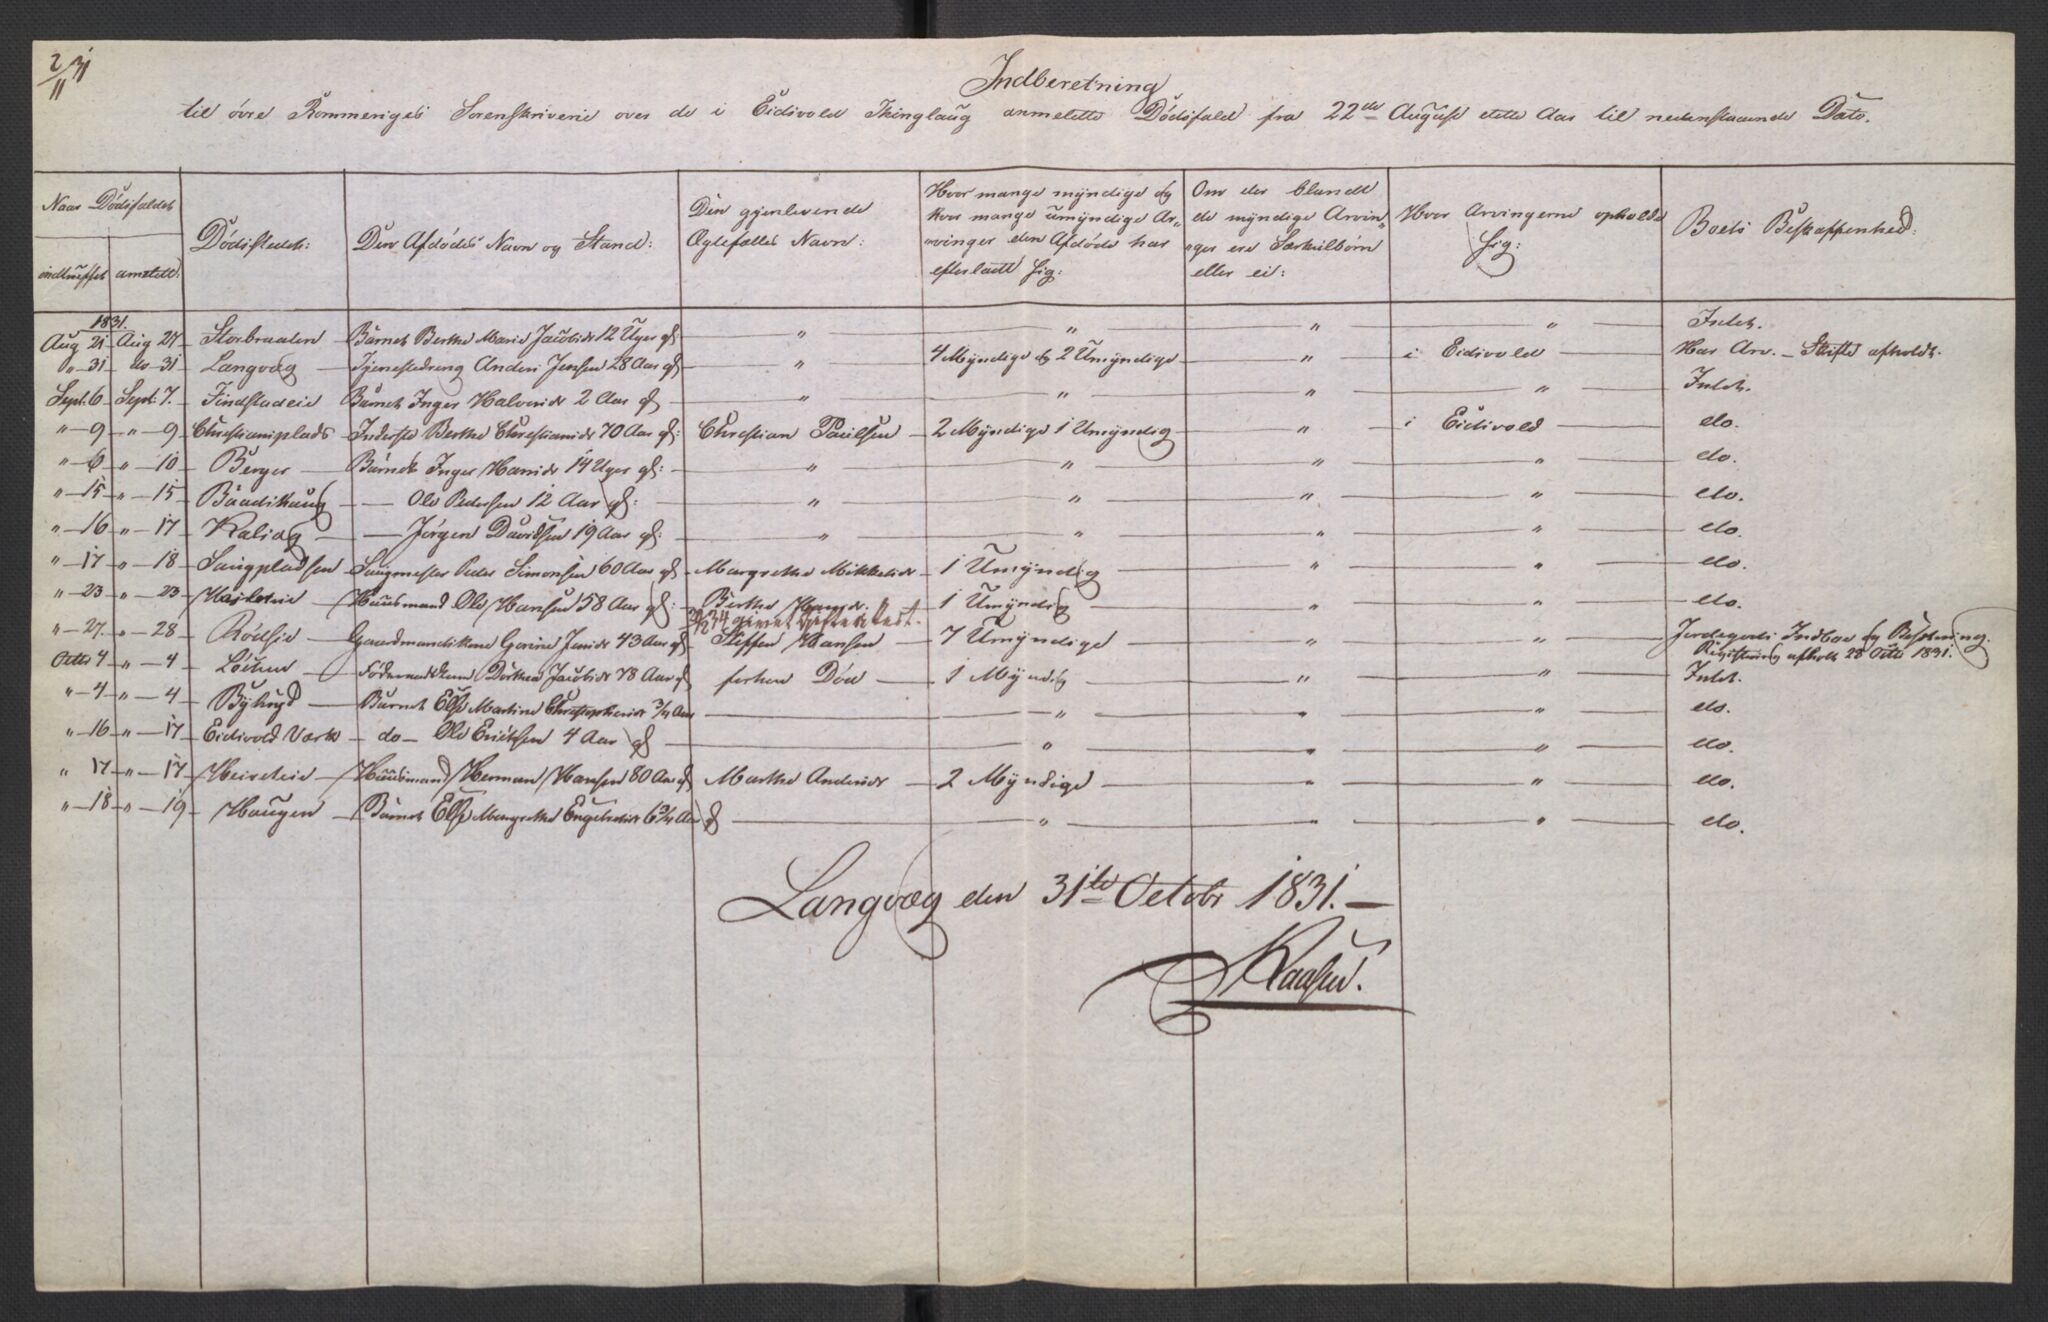 2/11 31
Indberetning
til övre Rommeriges Sorenskriverie over de i Eidsvold Thinglaug anmeldte Dödsfald fra 22de August dette Aar til nedenstaaende Dato.
Naar Dödsfaldet
indtruffet
anmeldt:
Dödsstedet:
Den Afdödes Navn og Stand:
Den gjenlevende
Ægtefælles Navn:
Hvor mange myndige og
hvor mange umyndige Ar-
vinger den Afdöde har
efterladt sig:
Om der blandt
de myndige Arvin-
ger ere Særkulbörn
eller ei:
Hvor Arvingerne opholde
sig:
Boets Beskaffenhed:
1831.
Aug 21 Aug 27 Storbraaten Barnet Berthe Marie Jacobsdr 12 Uger gl: " " " " Intet.
" 31 do 31 Langvæg Tjenestedreng Anders Jensen 28 Aar gl " 4 Myndige og 2 Umyndige " i Eidsvold Har Arv. - Skifte afholdt.
Sept. 6 Sept. 7. Findstadeie Barnet Inger Halvorsdr 2 Aar gl " " " " Intet.
" 9 " 9 Christiansplads Inderste Berthe Christiansdr 70 Aar gl: Christian Paulsen 2 Myndige 1 Umyndig " i Eidsvold do.
" 6 " 10 Berger Barnet Inger Hansdr 14 Uger gl: " " " " do.
" 15 " 15 Baadshaug — Ole Pedersen 12 Aar gl: " " " " do.
" 16 " 17 — Jörgen Davidsen 19 Aar gl: " " " " do.
" 17 " 18 Saugpladsen Saugmester Peder Simonsen 60 Aar gl Margrethe Mikkelsdr 1 Umyndig " " do.
" 23 " 23 Huusmand Ole Hansen 58 Aar gl: Berthe Hansdr. 1 Umyndig " " do.
34 givet Skifteattest.
" 27. " 28 Rödsie Gaardmandskone Gorine Jensdr 43 Aar gl Steffen Hansen 7 Umyndige " " Jordegods Indboe og Besætning.
Registrering afholdt 28 Octbr 1831.
Octbr 4 " 4 Löihen Dorthea Jacobsdr 78 Aar gl forhen Död 1 Myndig " " Intet.
" 4 " 4 Byhryd Barnet Else Martine Christophersdr 3/4 Aar " " " do.
" 16 " 17 Eidsvold Værk do Ole Erichsen 4 Aar gl " " " do.
" 17 " 17 Huusmand Herman Hansen 80 Aar gl Marthe Andersdr 2 Myndige " " do.
" 18 " 19 Haugen Barnet Else Margrethe Engebretsdr 6 3/4 Aar gl " " " do.
Langvæg den 31te Octobr 1831.
Kaasen.